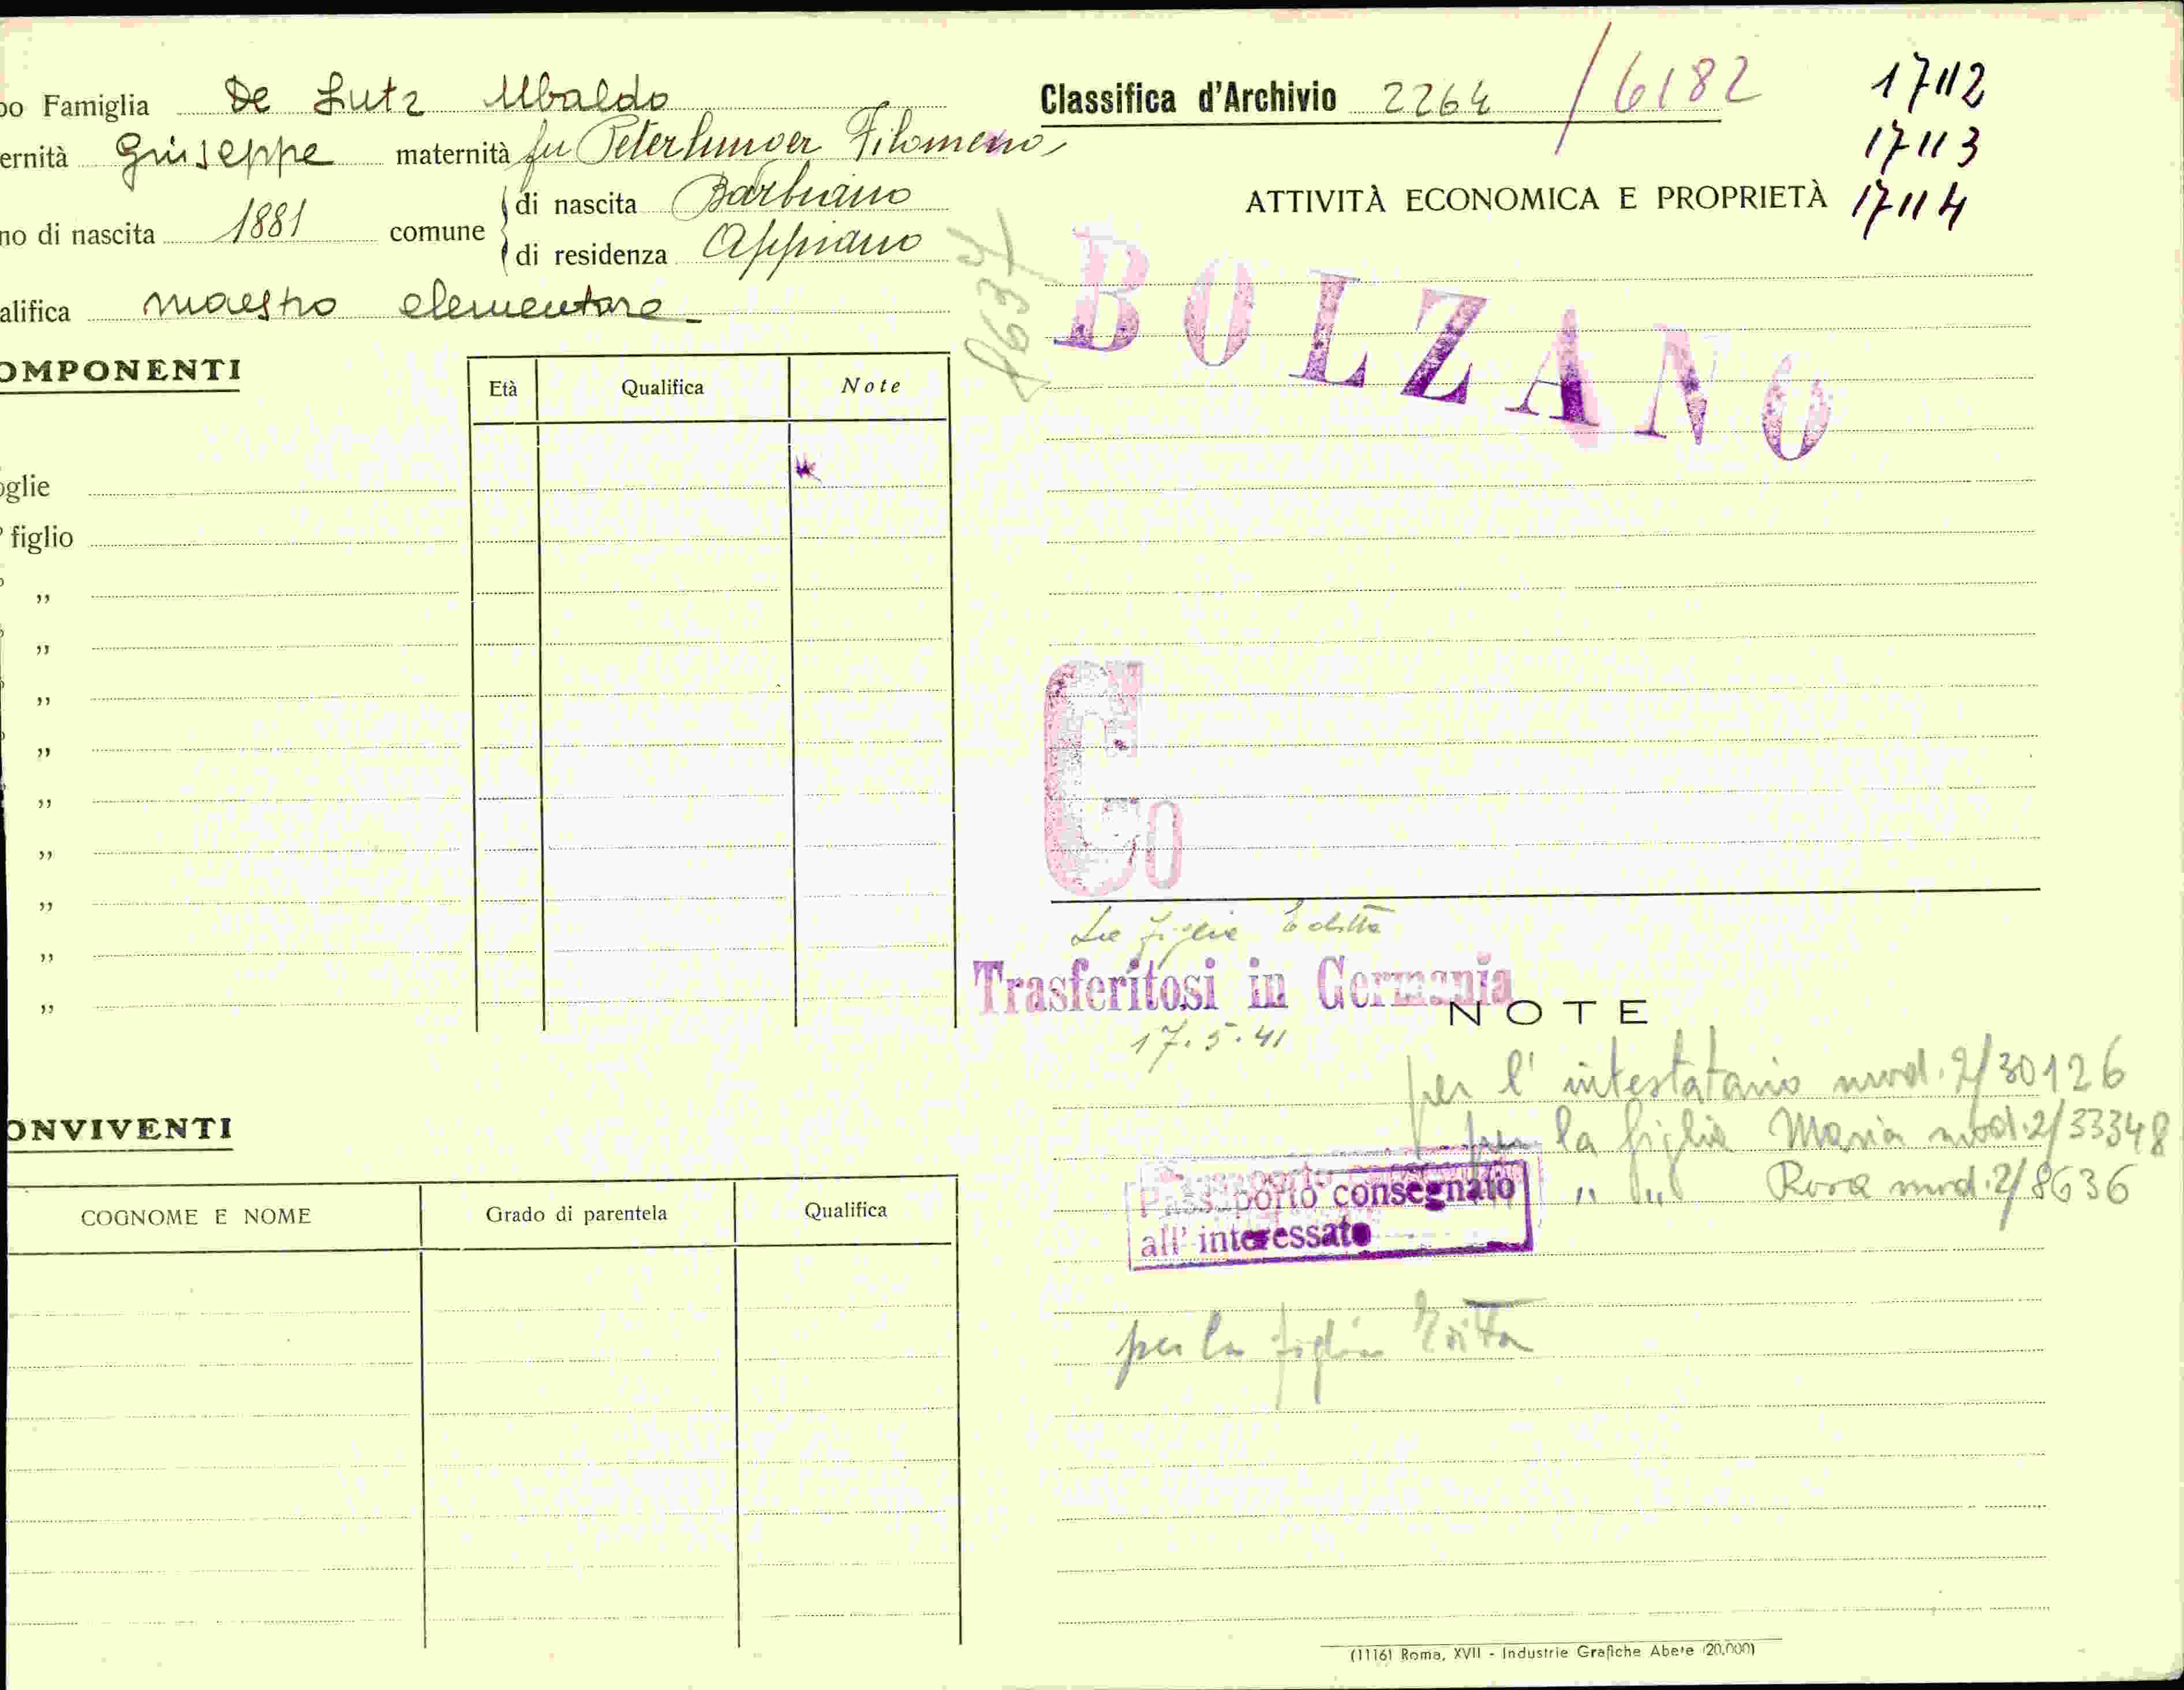 po Famiglia De Lutz Ubaldo
ernità Giuseppe maternità fu Peterlunger Filomena
no di nascita 1881 comune di nascita Barbiano
di residenza Appiano
alifica maestro elementare
OMPONENTI
Età Qualifica Note
oglie
figlio
„
„
„
„
„
„
„
„
„
ONVIVENTI
COGNOME E NOME Grado di parentela Qualifica
Classifica d'Archivio 2264 / 6182
17112
17113
17114
ATTIVITÀ ECONOMICA E PROPRIETÀ
BOLZANO
Co
La figlia Editta
Trasferitosi in Germania
17.5.41
NOTE
per l'intestatario mod. 2/30126
per la figlia Maria mod. 2/33348
„ „ Rosa mod. 2/8636
Passaporto consegnato
all'interessato
per la figlia
(11161 Roma, XVII - Industrie Grafiche Abete (20.000)